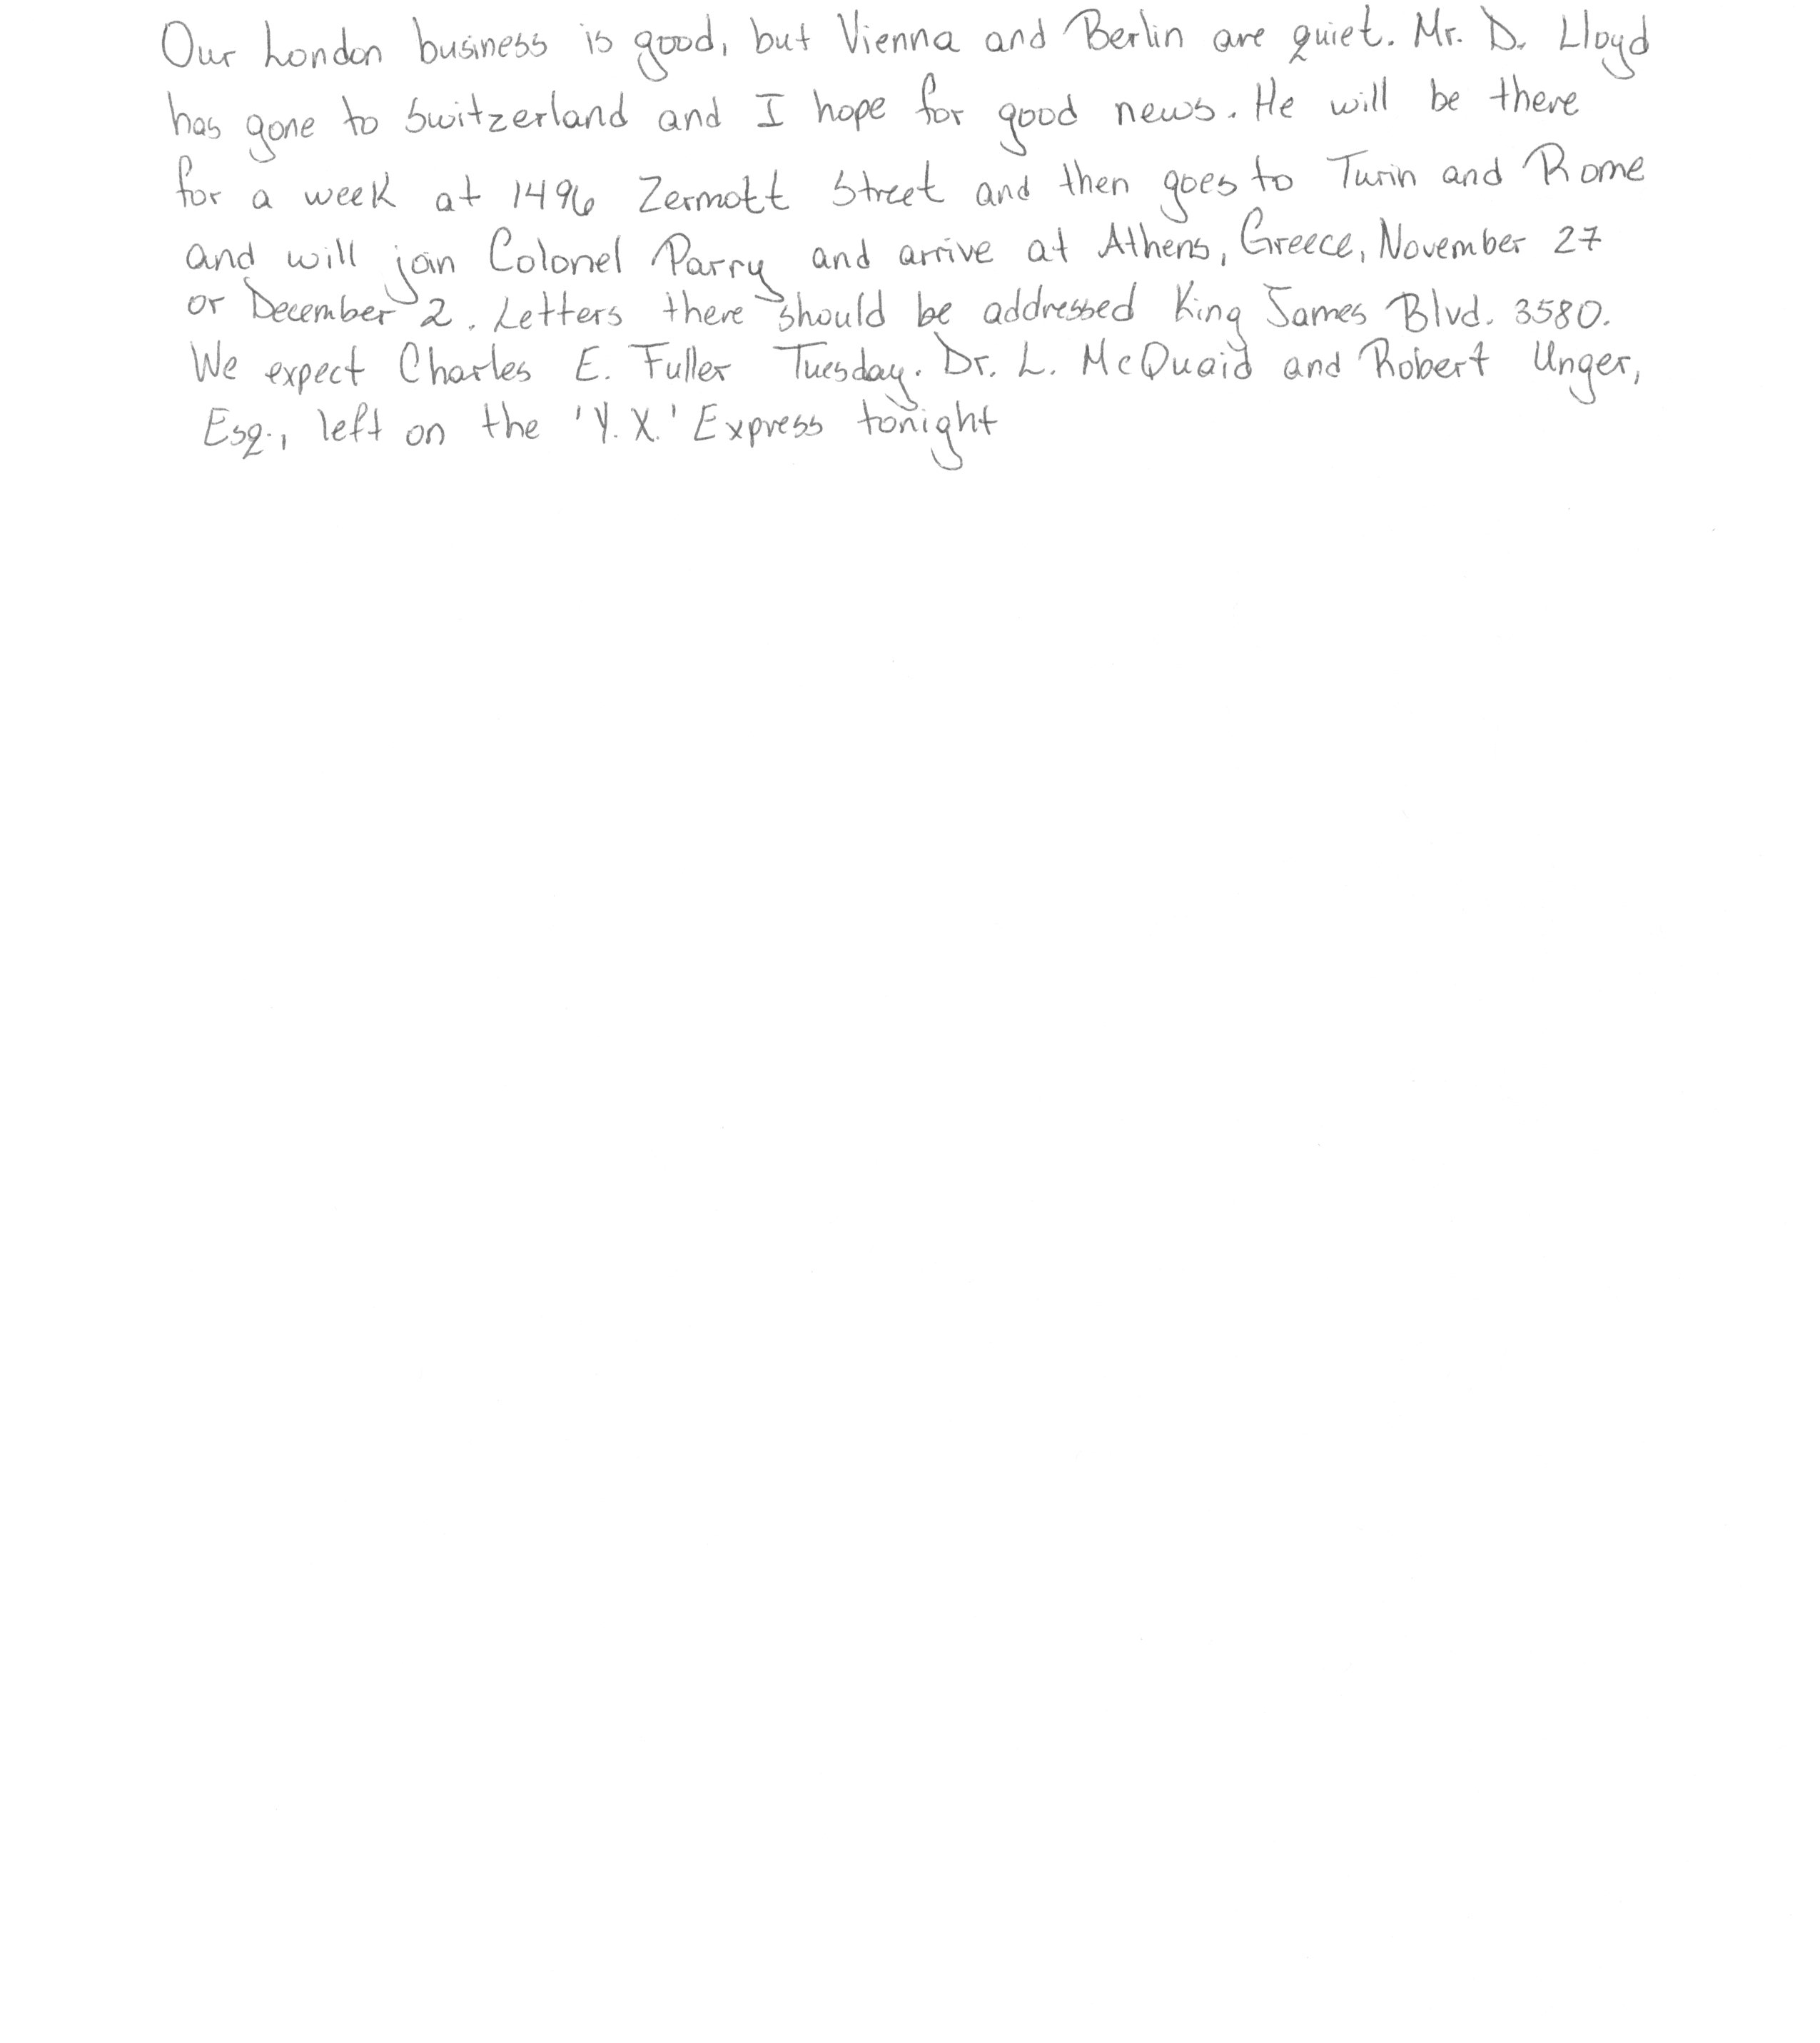 Our London business is good, but Vienna and Berlin are quiet. Mr. D. Lloyd
has gone to Switzerland and I hope for good news. He will be there
for a week at 1496 Zermott Street and then goes to Turin and Rome
and will join Colonel Parry and arrive at Athens, Greece, November 27
or December 2. Letters there should be addressed King James Blvd. 3580.
We expect Charles E. Fuller Tuesday. Dr. L. McQuaid and Robert Unger,
Esq., left on the 'Y. X.' Express tonight